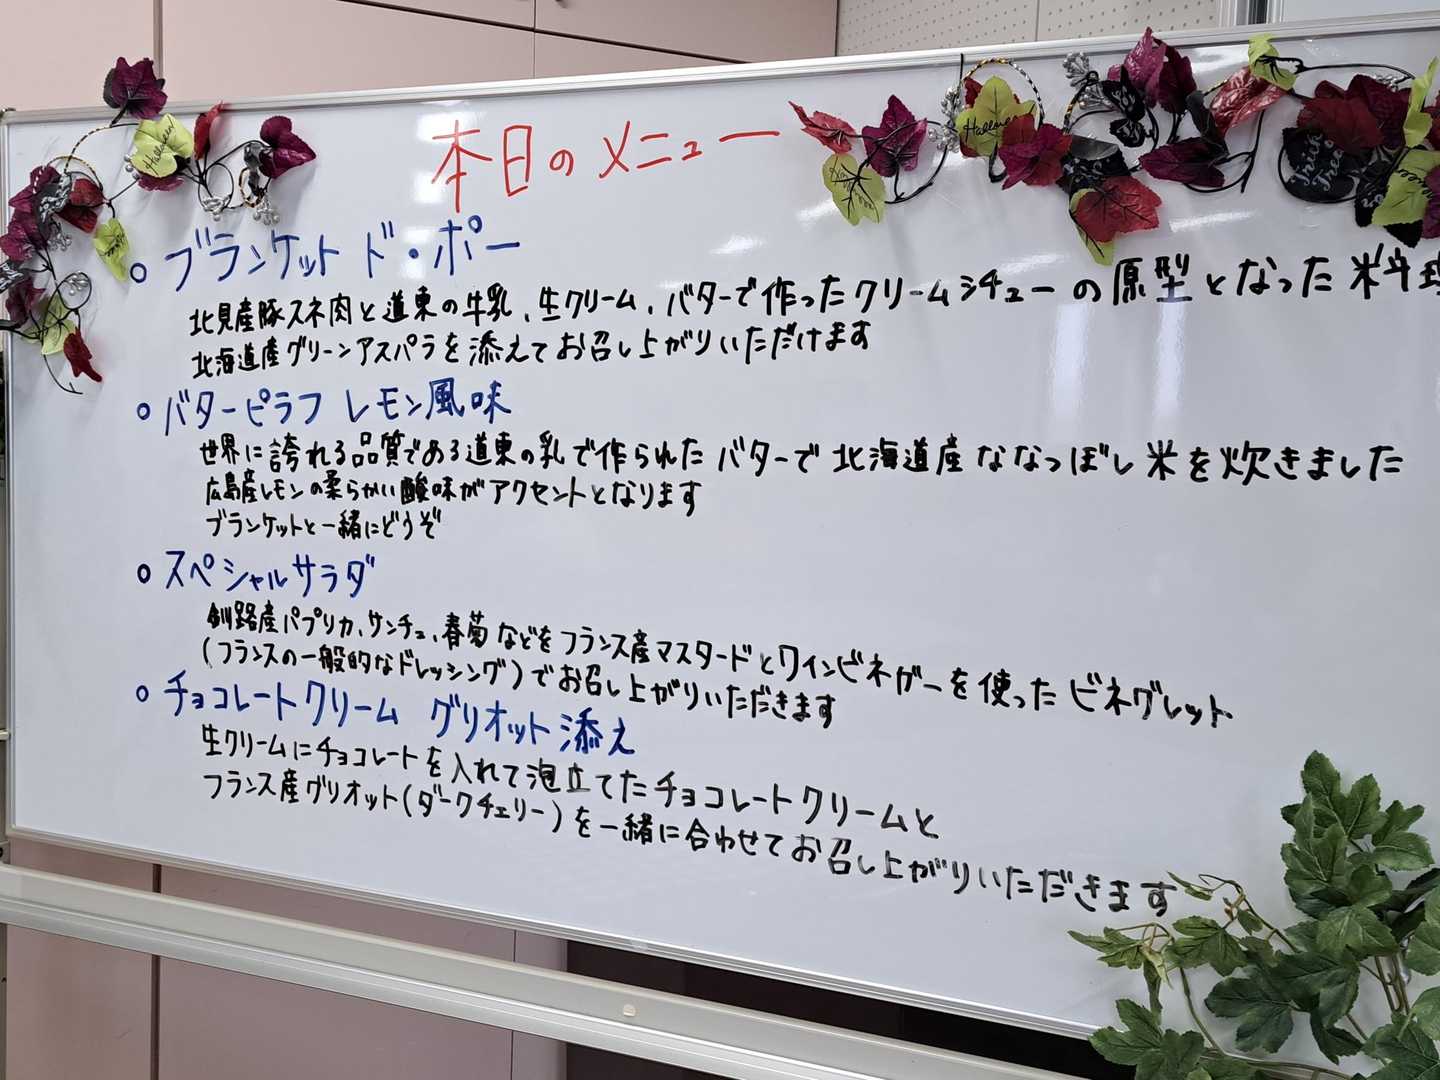 本日のメニュー
○ ブランケット ド・ポー
北見産豚スネ肉と道東の牛乳、生クリーム、バターで作ったクリームシチューの原型となった料理
北海道産グリーンアスパラを添えてお召し上がりいただけます
○ バターピラフ レモン風味
世界に誇れる品質である道東の乳で作られたバターで北海道産ななつぼし米を炊きました
広島産レモンの柔らかい酸味がアクセントとなります
ブランケットと一緒にどうぞ
○ スペシャルサラダ
釧路産パプリカ、サンチュ、春菊などをフランス産マスタードとワインビネガーを使ったビネグレット
(フランスの一般的なドレッシング)でお召し上がりいただきます
○ チョコレートクリーム グリオット添え
生クリームにチョコレートを入れて泡立てたチョコレートクリームと
フランス産グリオット(ダークチェリー)を一緒に合わせてお召し上がりいただきます
Halloween
Halloween
Trick or Treat